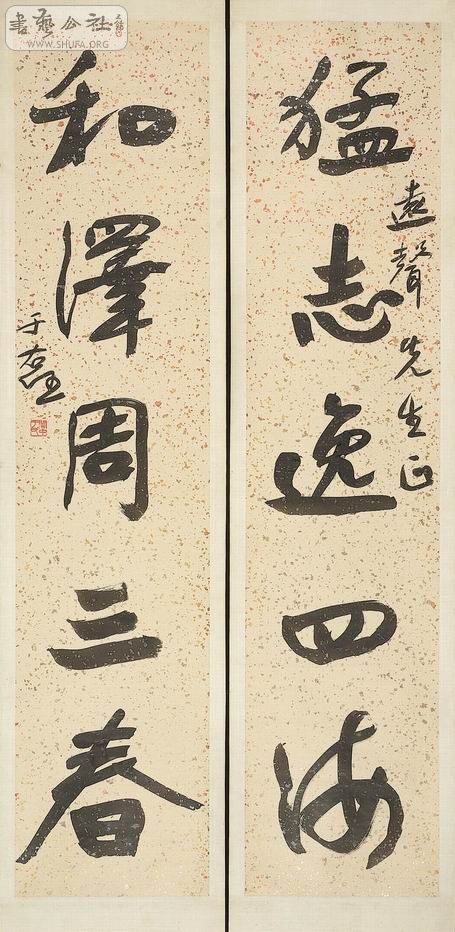 猛志逸四海
遠聲先生正
和澤周三春
于右任
書藝公社
WWW.SHUFA.ORG